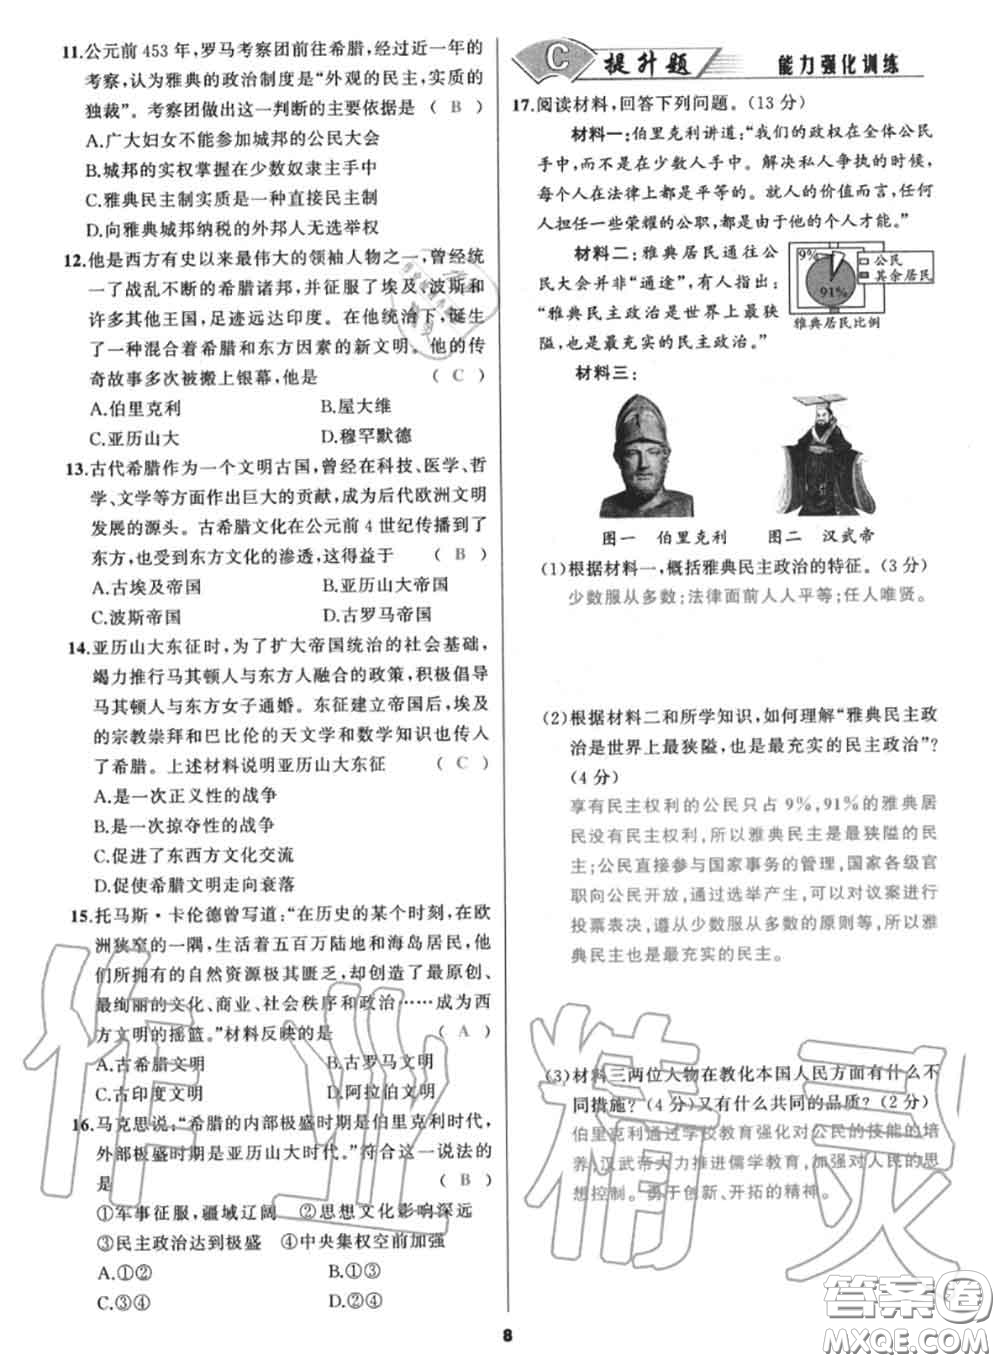 11.公元前 453 年,罗马考察团前往希腊,经过近一年的
考察,认为雅典的政治制度是“外观的民主,实质的
独裁”。考察团做出这一判断的主要依据是 ( B )
A.广大妇女不能参加城邦的公民大会
B.城邦的实权掌握在少数奴隶主手中
C.雅典民主制实质是一种直接民主制
D.向雅典城邦纳税的外邦人无选举权
12.他是西方有史以来最伟大的领袖人物之一,曾经统
一了战乱不断的希腊诸邦,并征服了埃及、波斯和
许多其他王国,足迹远达印度。在他统治下,诞生
了一种混合着希腊和东方因素的新文明。他的传
奇故事多次被搬上银幕,他是 ( C )
A.伯里克利 B.屋大维
C.亚历山大 D.穆罕默德
13.古代希腊作为一个文明古国,曾经在科技、医学、哲
学、文学等方面作出巨大的贡献,成为后代欧洲文明
发展的源头。古希腊文化在公元前 4 世纪传播到了
东方,也受到东方文化的渗透,这得益于 ( B )
A.古埃及帝国 B.亚历山大帝国
C.波斯帝国 D.古罗马帝国
14.亚历山大东征时,为了扩大帝国统治的社会基础,
竭力推行马其顿人与东方人融合的政策,积极倡导
马其顿人与东方女子通婚。东征建立帝国后,埃及
的宗教崇拜和巴比伦的天文学和数学知识也传入
了希腊。上述材料说明亚历山大东征 ( C )
A.是一次正义性的战争
B.是一次掠夺性的战争
C.促进了东西方文化交流
D.促使希腊文明走向衰落
15.托马斯·卡伦德曾写道:“在历史的某个时刻,在欧
洲狭窄的一隅,生活着五百万陆地和海岛居民,他
们所拥有的自然资源极其匮乏,却创造了最原创、
最绚丽的文化、商业、社会秩序和政治……成为西
方文明的摇篮。”材料反映的是 ( A )
A.古希腊文明 B.古罗马文明
C.古印度文明 D.阿拉伯文明
16.马克思说:“希腊的内部极盛时期是伯里克利时代,
外部极盛时期是亚历山大时代。”符合这一说法的
是 ( B )
①军事征服,疆域辽阔 ②思想文化影响深远
③民主政治达到极盛 ④中央集权空前加强
A.①② B.①③
C.③④ D.②④
C 提升题 能力强化训练
17.阅读材料,回答下列问题。(13 分)
材料一:伯里克利讲道:“我们的政权在全体公民
手中,而不是在少数人手中。解决私人争执的时候,
每个人在法律上都是平等的。就人的价值而言,任何
人担任一些荣耀的公职,都是由于他的个人才能。”
材料二:雅典居民通往公
民大会并非“通途”,有人指
出:“雅典民主政治是世界上最狭
隘,也是最充实的民主政治。”
9%
91%
公民
其余居民
雅典居民比例
材料三:
图一 伯里克利 图二 汉武帝
(1)根据材料一,概括雅典民主政治的特征。(3 分)
少数服从多数;法律面前人人平等;任人唯贤。
(2)根据材料二和所学知识,如何理解“雅典民主政
治是世界上最狭隘,也是最充实的民主政治”?
(4 分)
享有民主权利的公民只占 9%,91%的雅典居
民没有民主权利,所以雅典民主是最狭隘的民
主;公民直接参与国家事务的管理,国家各级官
职向公民开放,通过选举产生,可以对议案进行
投票表决,遵从少数服从多数的原则等,所以雅
典民主也是最充实的民主。
(3)材料三两位人物在教化本国人民方面有什么不
同措施?(4 分)又有什么共同的品质?(2 分)
伯里克利通过学校教育强化对公民的技能的培
养,汉武帝大力推进儒学教育,加强对人民的思
想控制。勇于创新、开拓的精神。
作业精灵
答案圈
MXQE.COM
8